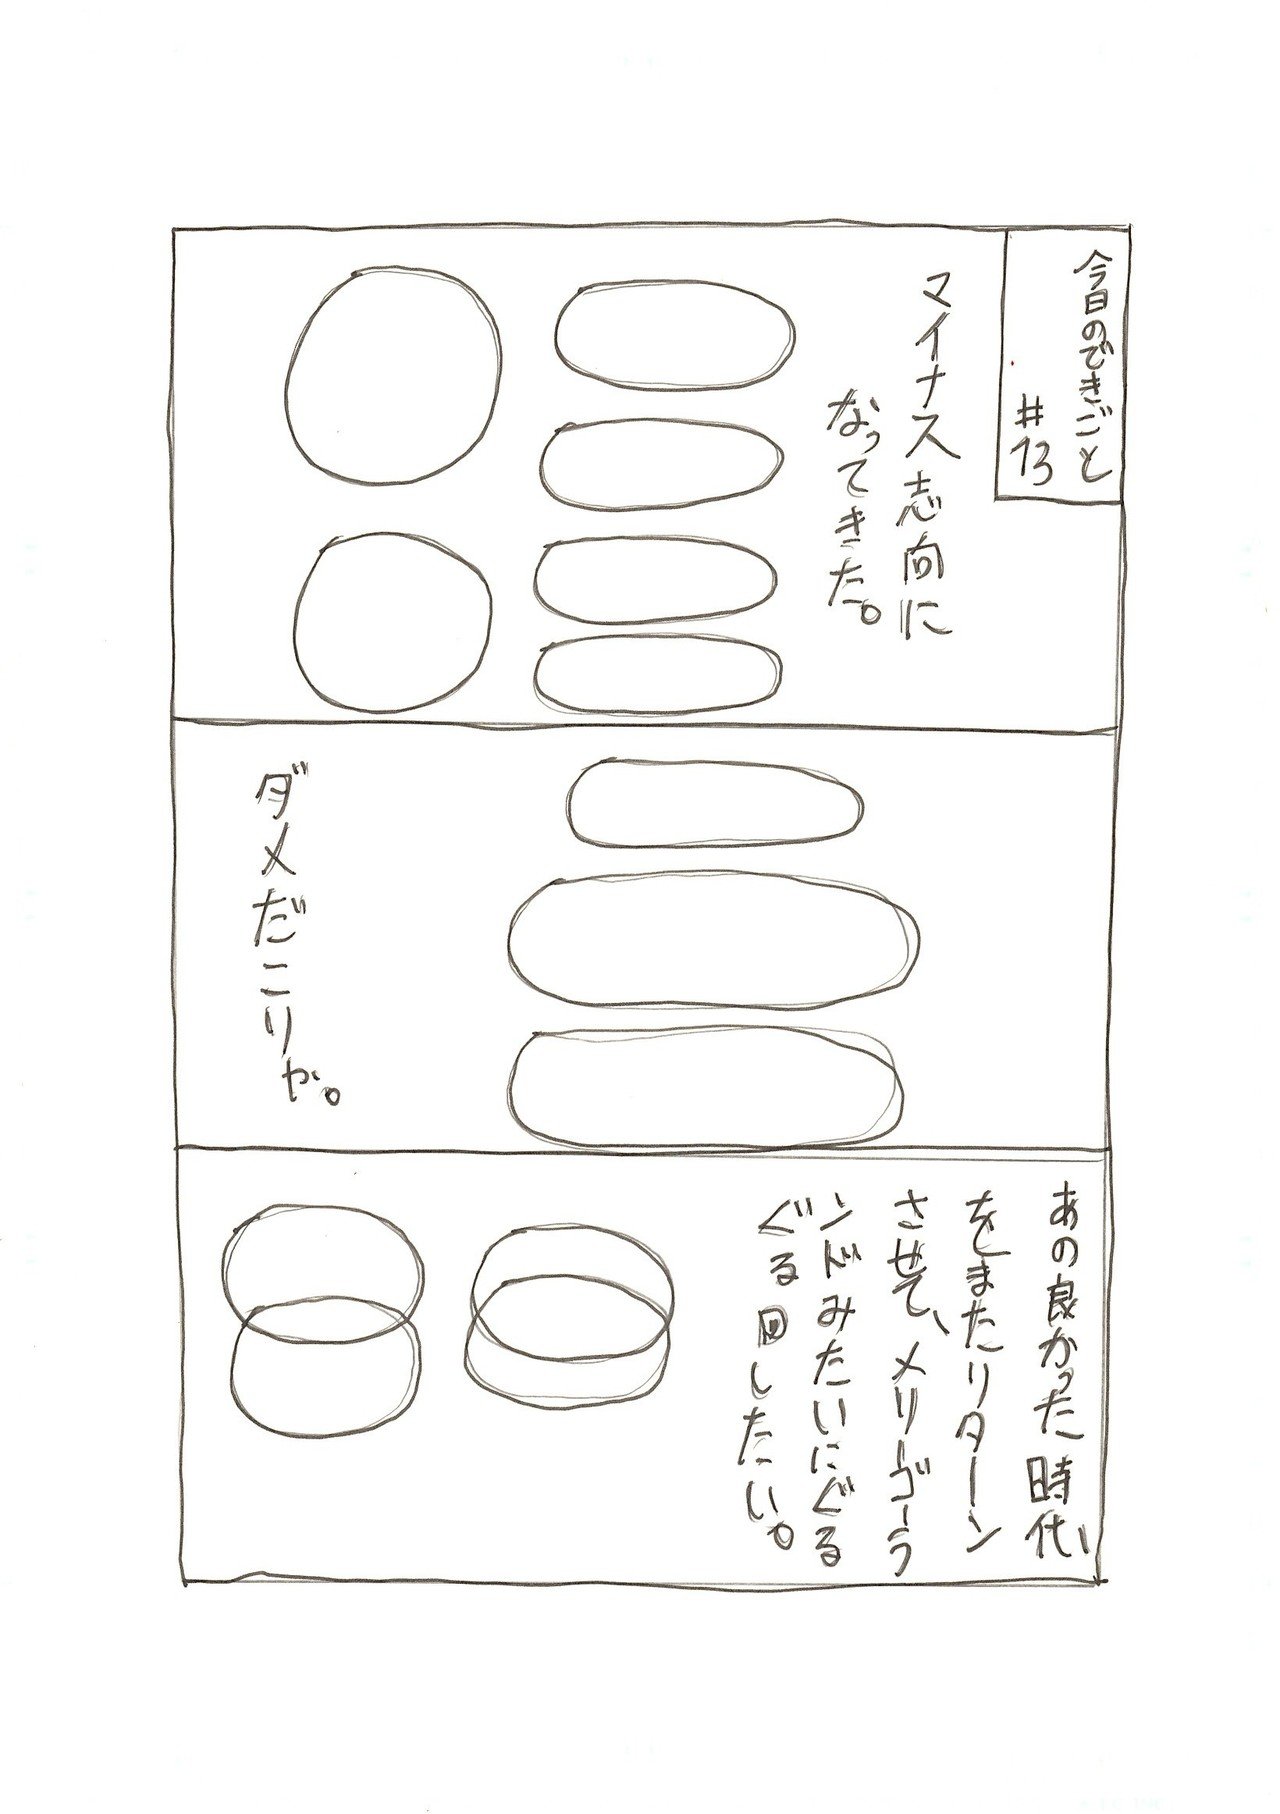 今日のできごと
#13
マイナス志向に
なってきた。
ダメだこりゃ。
あの良かった時代、
をまたリターン
させて、メリーゴーラ
ンドみたいにぐる
ぐる回したい。